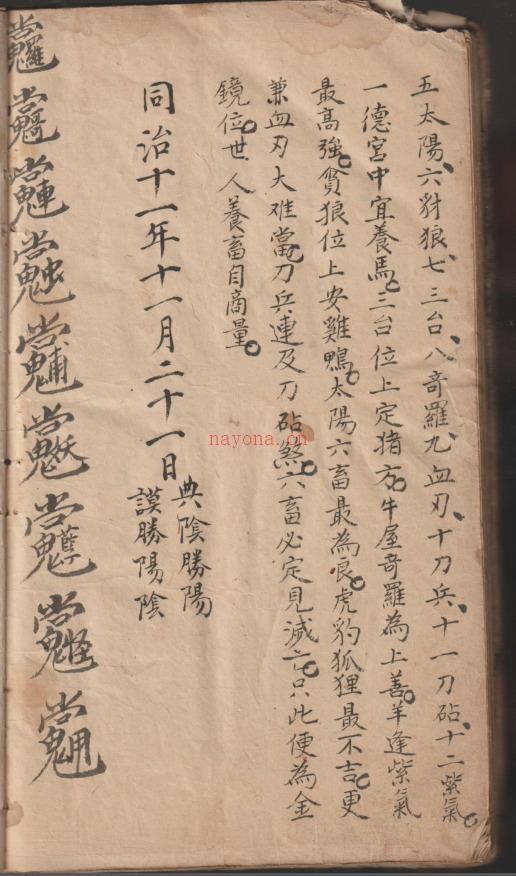 五太陽、六豺狼、七三台、八奇羅、九血刃、十刀兵、十一刀砧、十二紫氣。
一德宮中宜養馬。三台位上定猪方。牛屋奇羅為上善。羊逢紫氣
最高強。貪狼位上安雞鴨。太陽六畜最為良。虎豹狐狸最不吉。更
兼血刃大难當。刀兵連及刀砧煞。六畜必定見滅亡。只此便為金
鏡位。世人養畜自商量。
同治十一年十一月二十一日
典陰勝陽
謨勝陽陰
nayona.cn